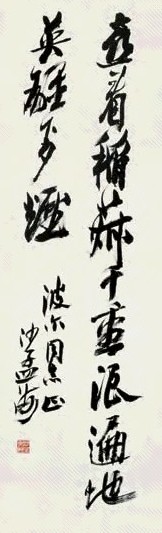 喜看稻菽千重浪遍地
英雄下夕烟
波尔同志正
沙孟海